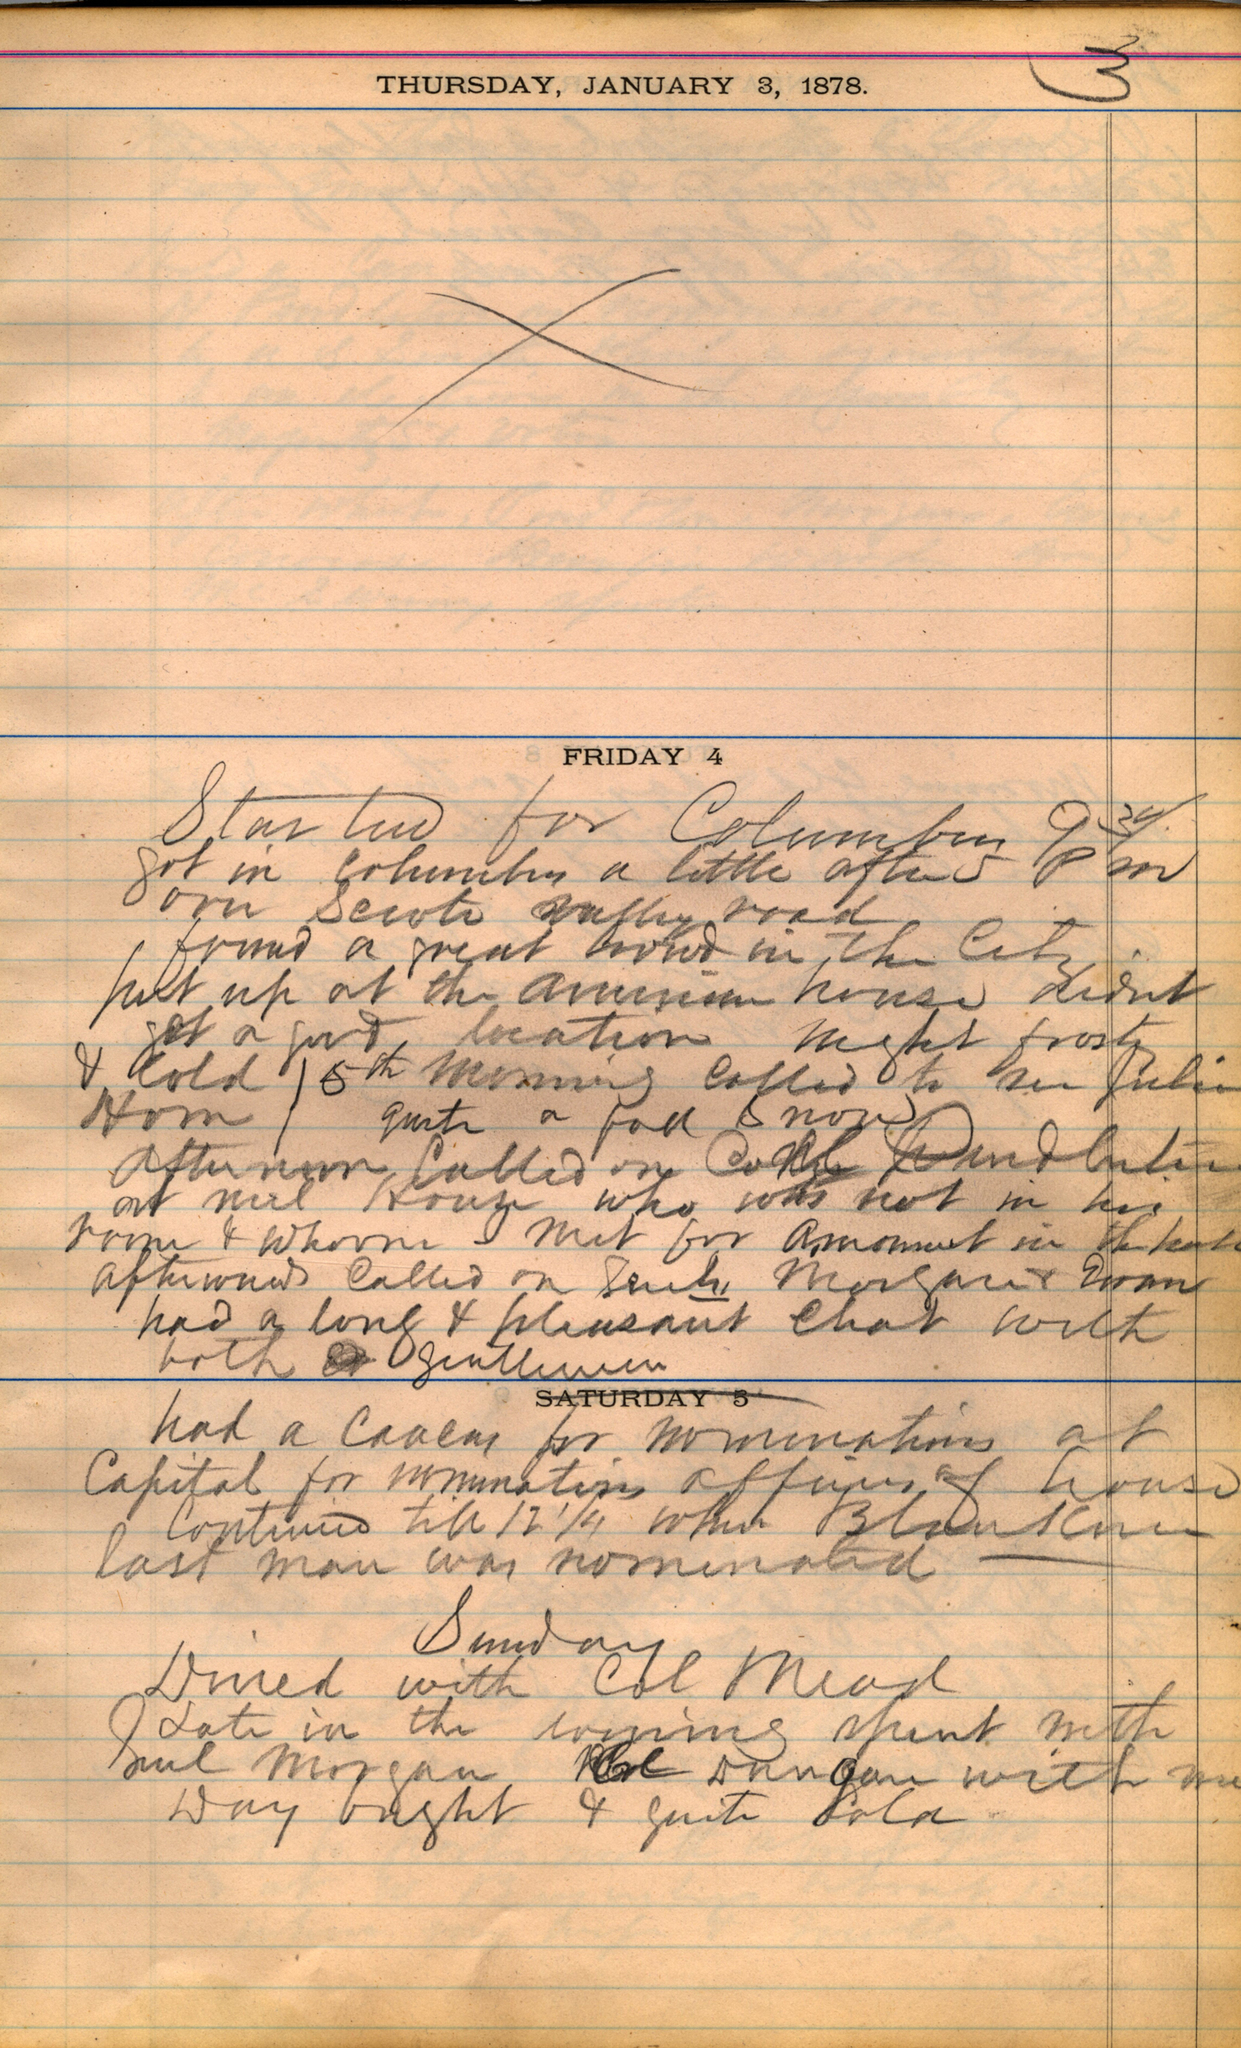 3
THURSDAY, JANUARY 3, 1878.
FRIDAY 4
Started for Columbus 9 30/
got in Columbus a little after 5 P m
over Scioto valley road
found a great crowd in the City
put up at the American house didnt
get a good location night frosty
& Cold / 5th Morning Called to see Julia
Horn / quite a fall snow
afternoon Called on
at Neil House who was not in his
room & whom I met for a moment in the
afterwards Called on Morgan &
had a long & pleasant Chat with
both gentlemen
SATURDAY 5
had a Caucus for nominations at
Capital for nominating officers of house
Continued till 12 1/4 when
last man was nominated
Sunday
Dined with Col Mead
Late in the evening spent with
Morgan Col with me
Day bright & quite Cold